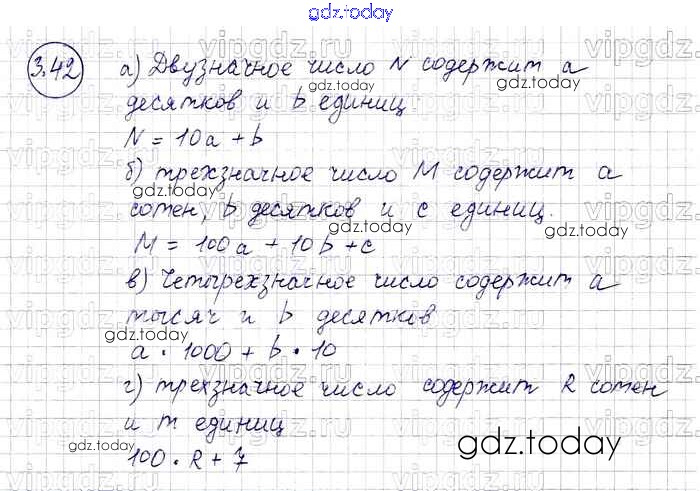 gdz.today
3.42
а) Двузначное число N содержит a
десятков и b единиц
N = 10a + b
б) трехзначное число M содержит a
gdz.today
сотен, b десятков и c единиц.
gdz.today
M = 100a + 10b + c
в) Четырехзначное число содержит a
gdz.today
тысяч и b десятков
gdz.today
a · 1000 + b · 10
г) трехзначное число содержит R сотен
и m единиц
gdz.today
gdz.today
100 · R + 7